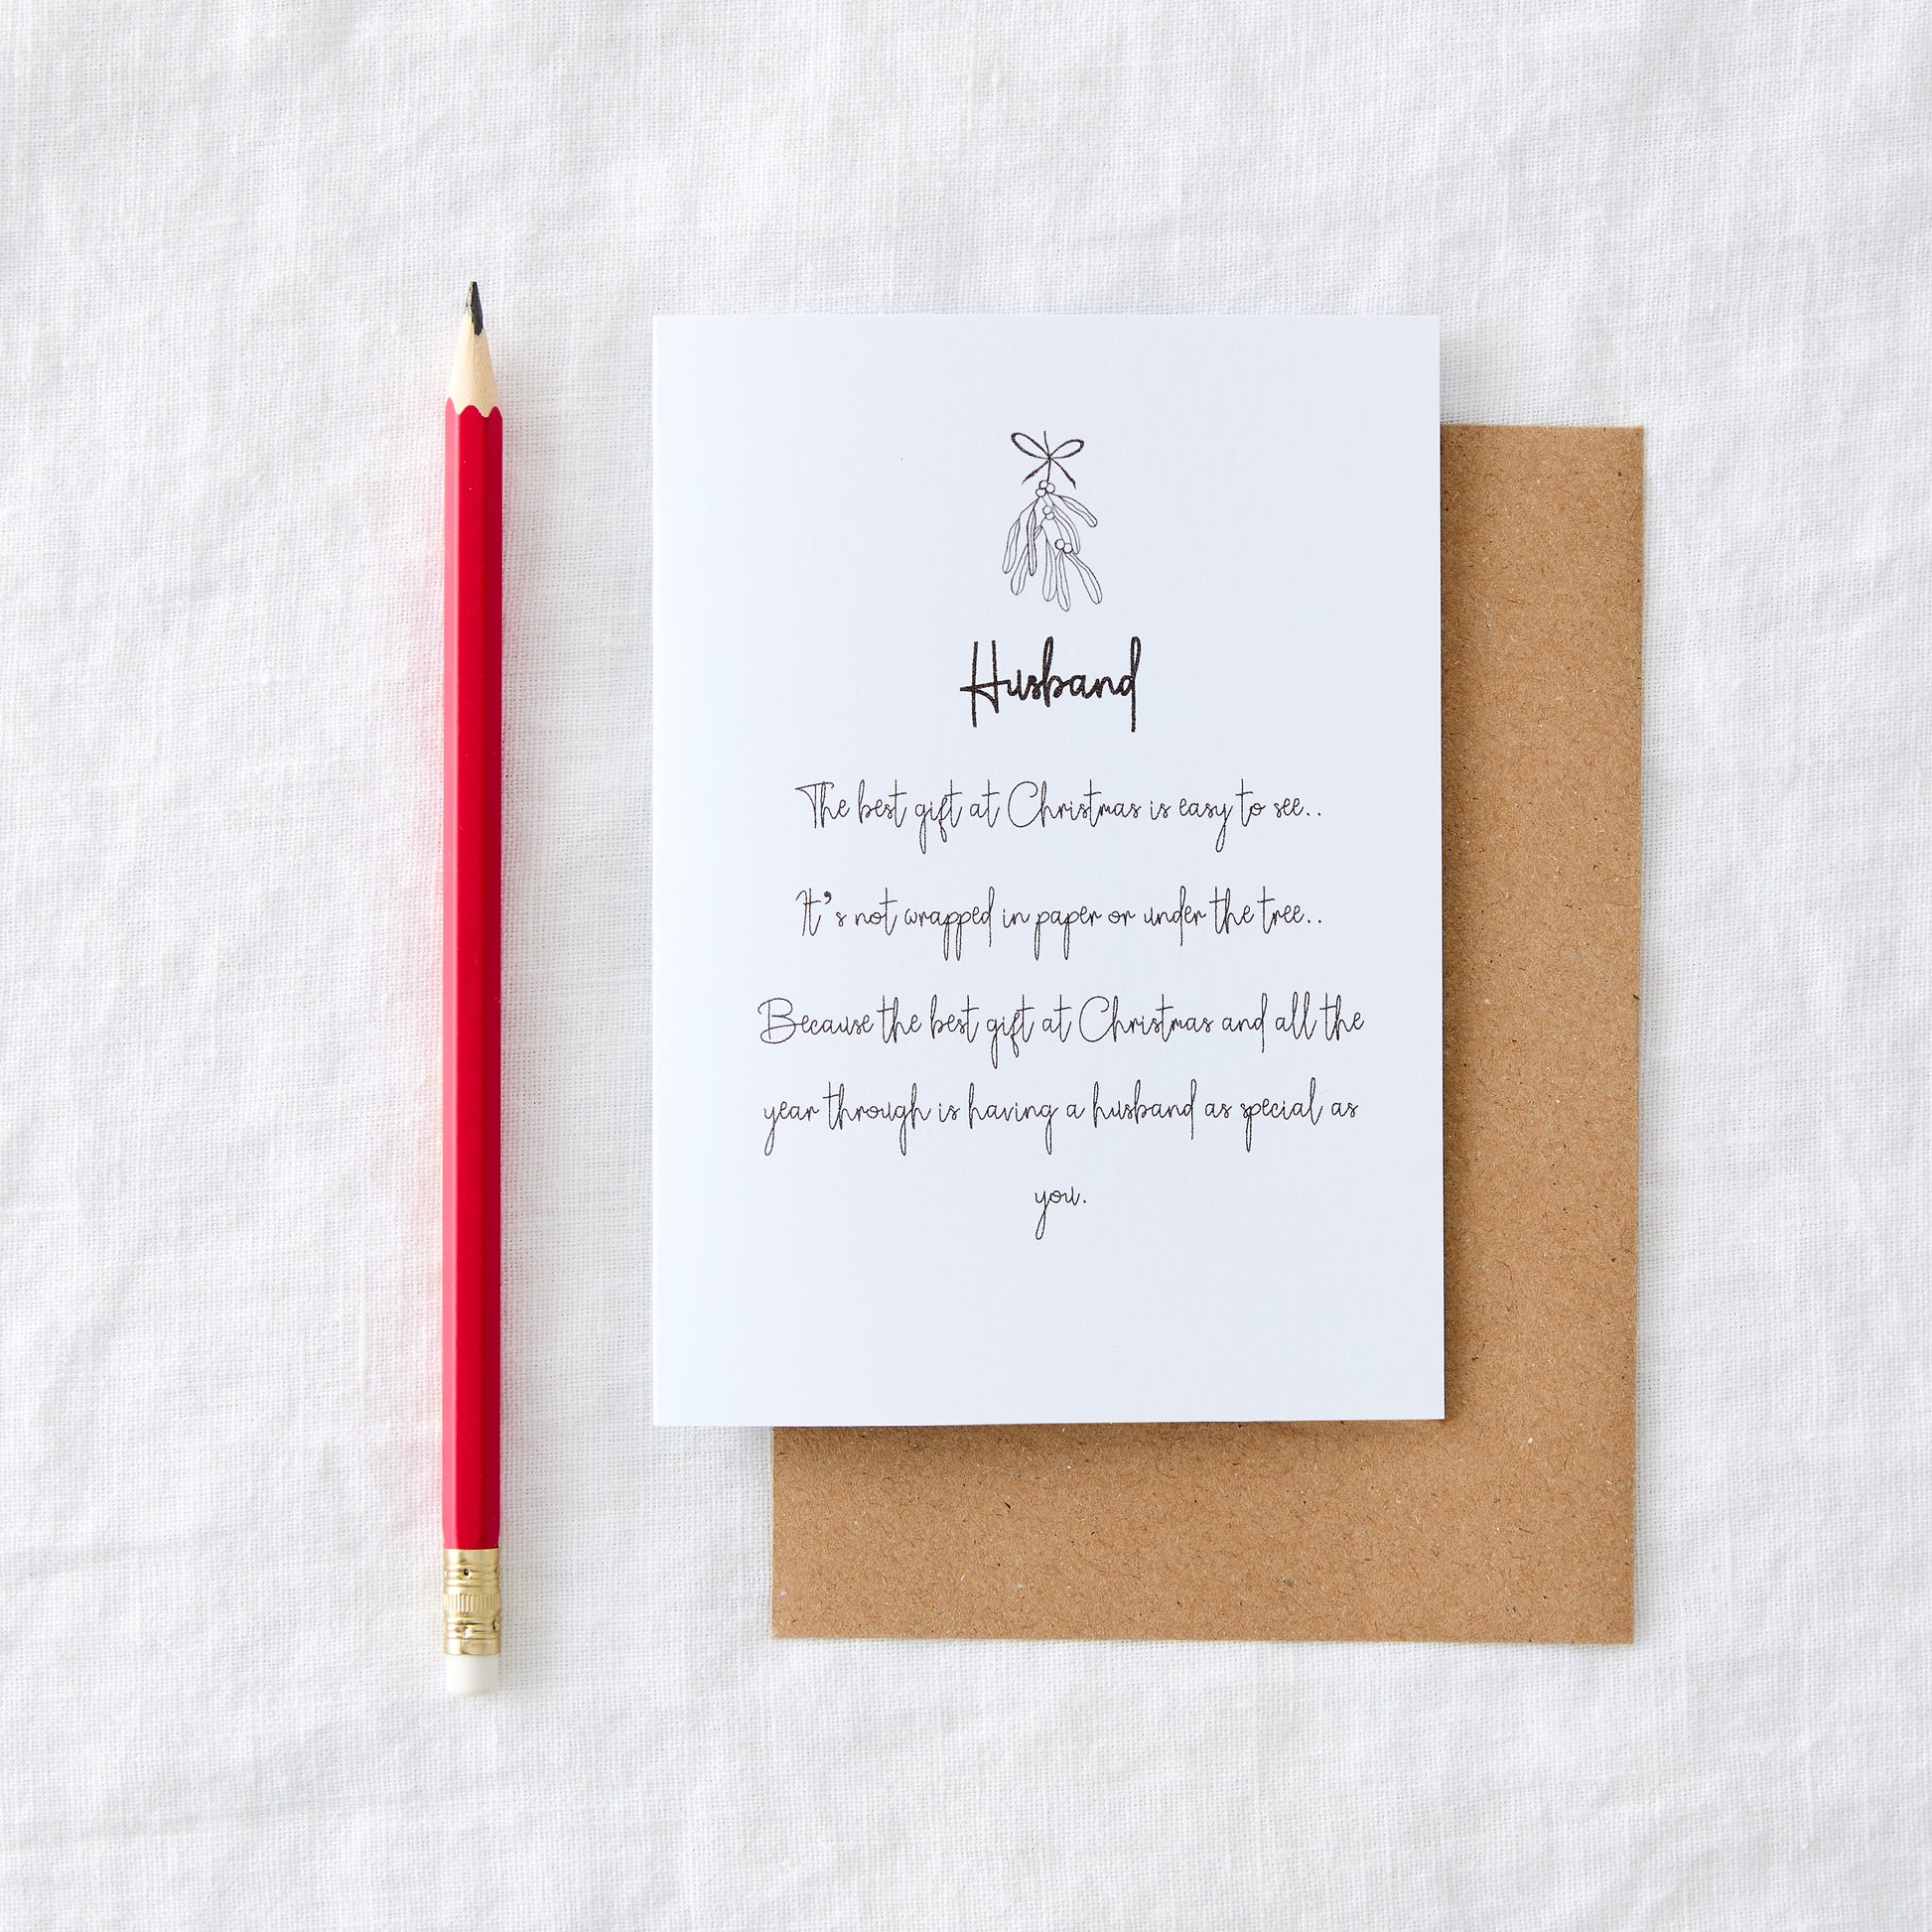 Husband
The best gift at Christmas is easy to see..
It's not wrapped in paper or under the tree..
Because the best gift at Christmas and all the
year through is having a husband as special as
you.